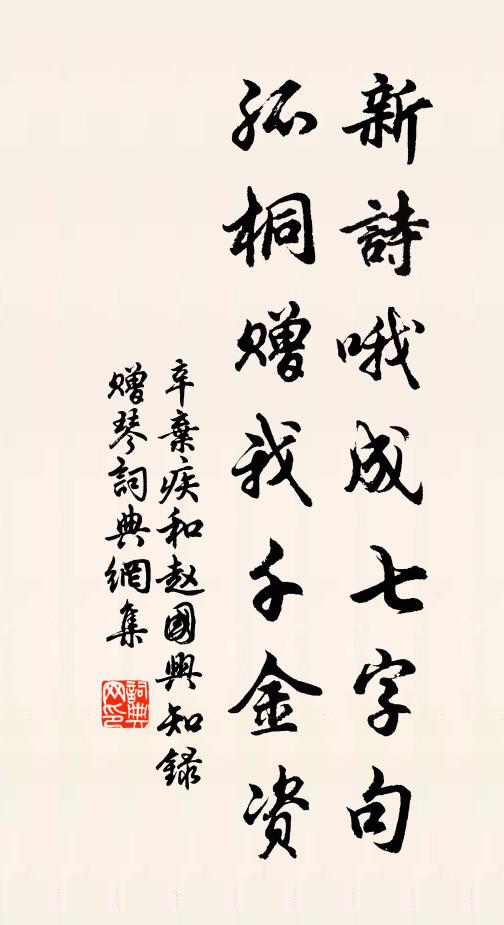 新詩哦成七字句
孤桐赠我千金资
辛棄疾和赵國興知録
赠琴詞典網集
詞典網印